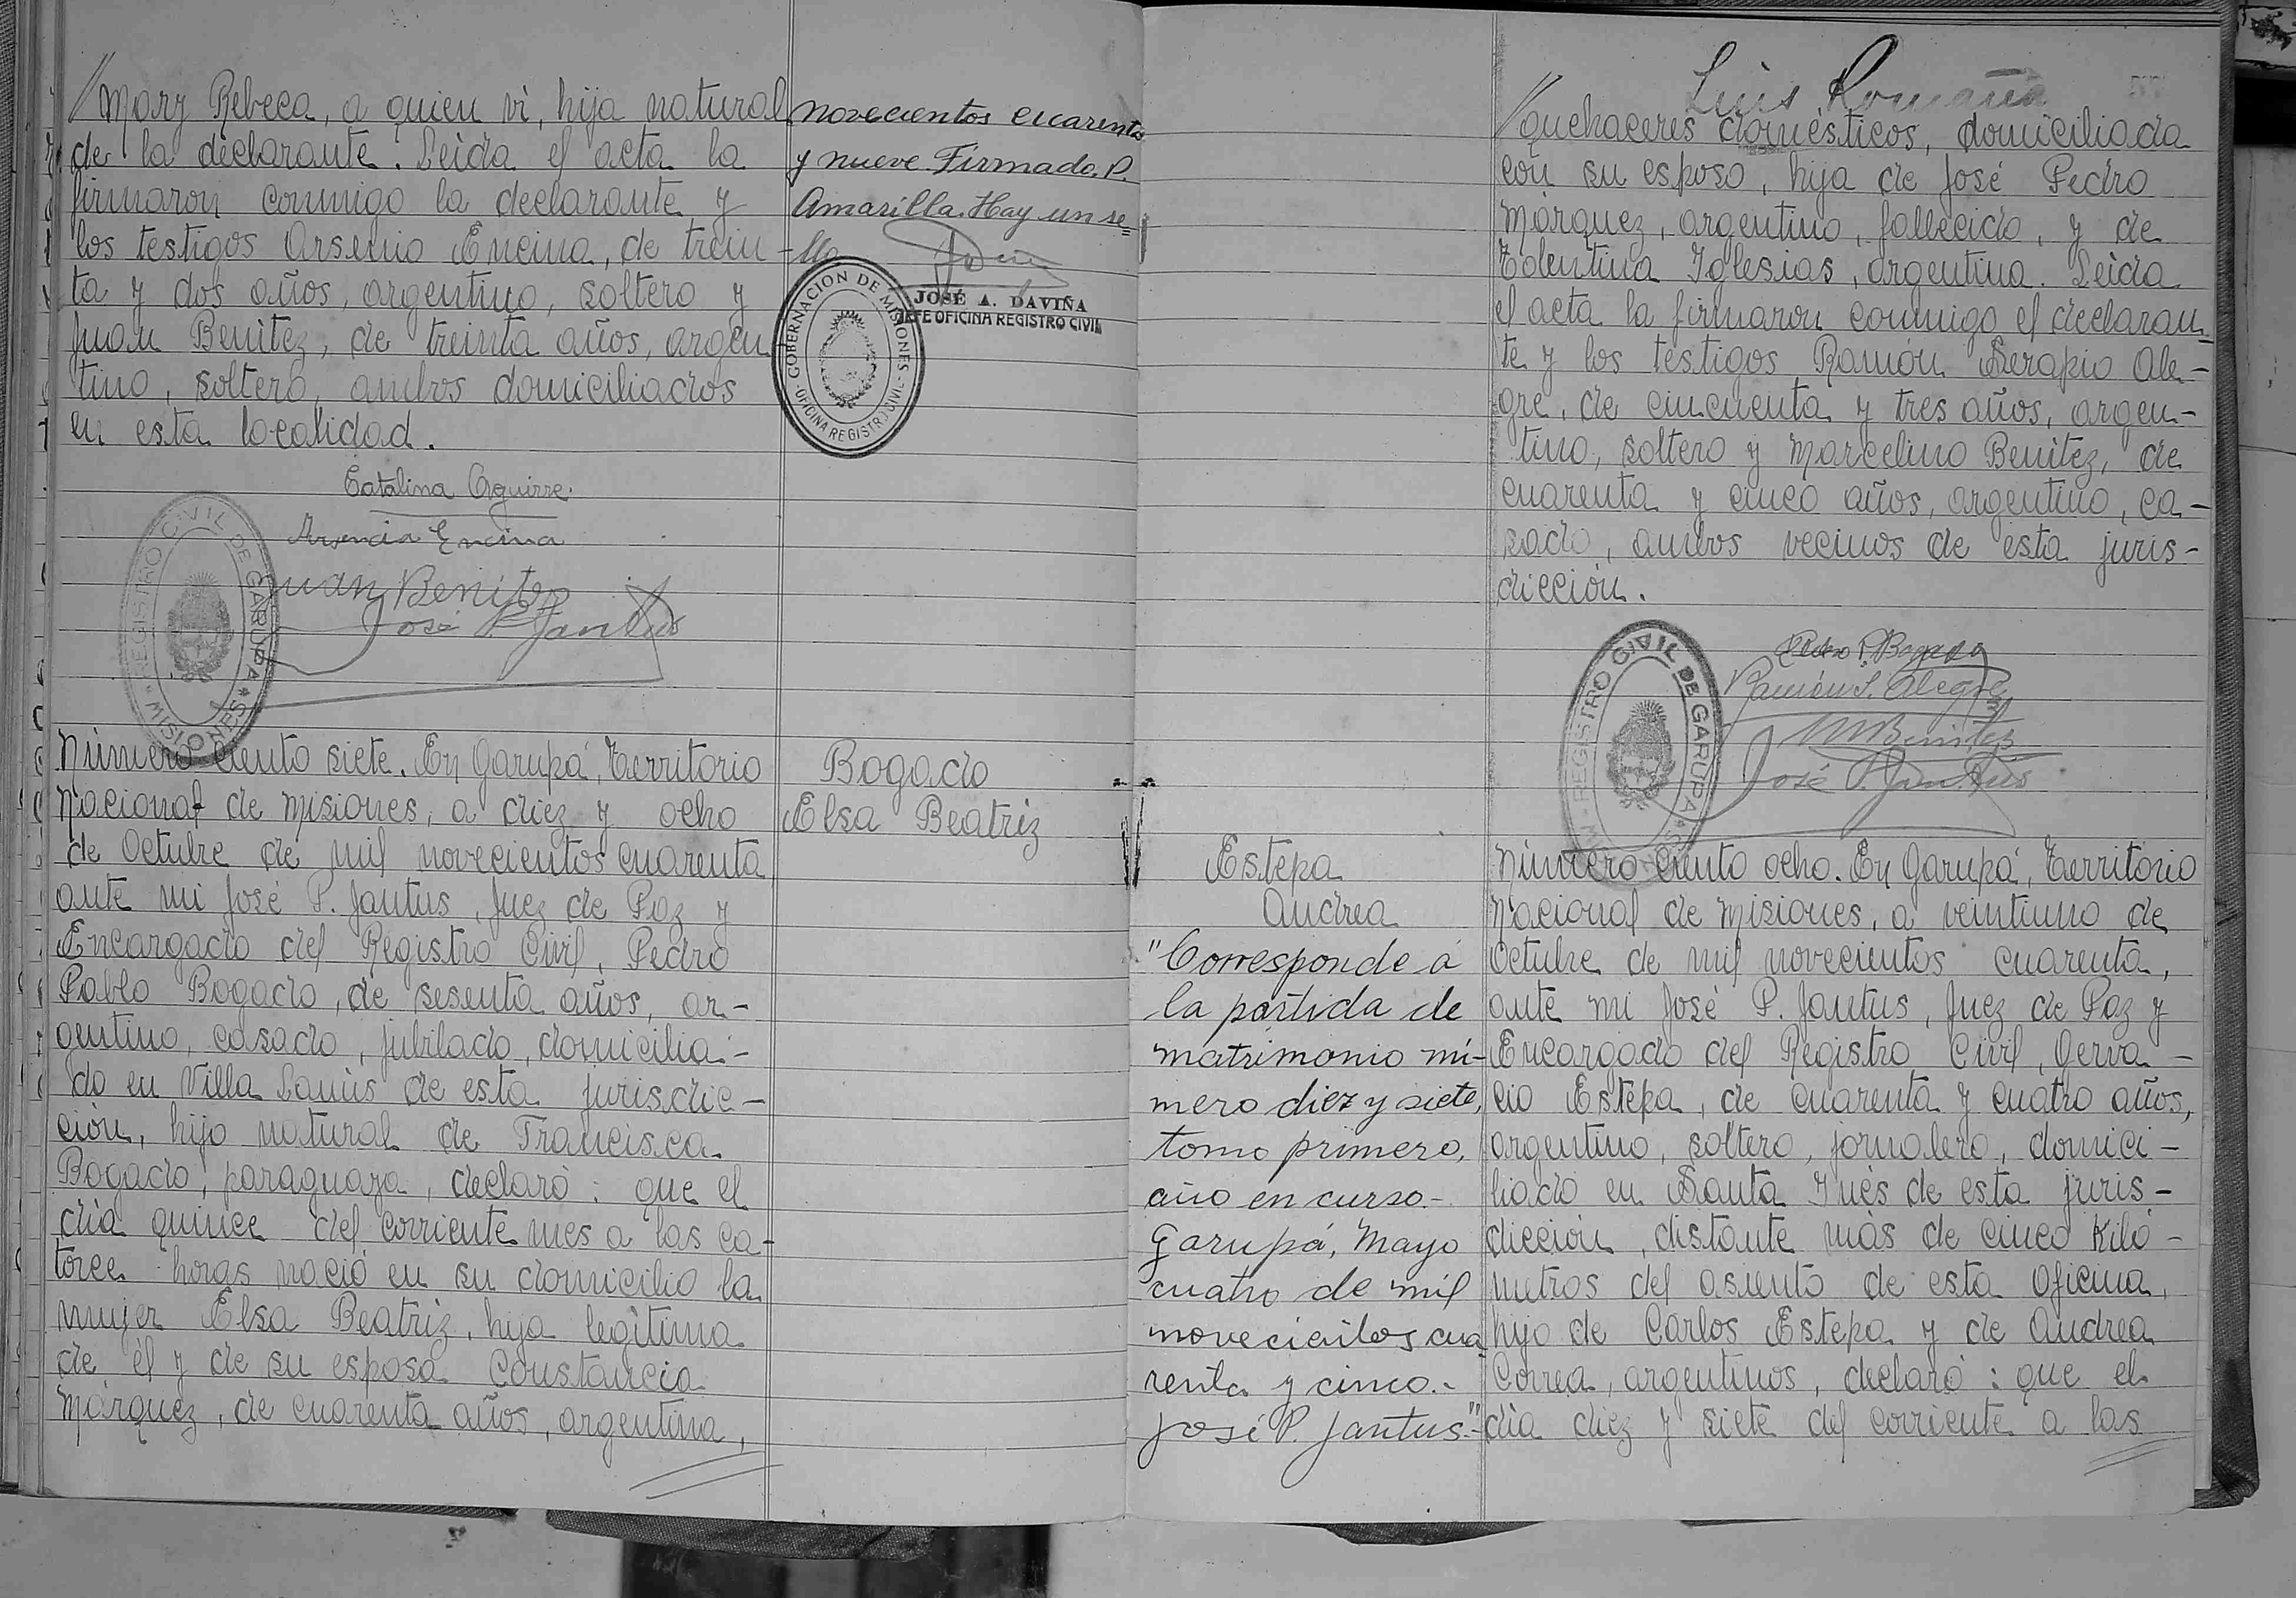 // Mary Rebeca, a quien vi, hija natural
de la declarante. Leida el acta la
firmaron conmigo la declarante y
los testigos Arsenio Encina, de trein-
ta y dos años, argentino, soltero y
Juan Benitez, de treinta años, argen-
tino, soltero, ambos domiciliados
en esta localidad.
Catalina Aguirre.
Arsencia Encina
Juan Benitez
José P. Jantus
REGISTRO CIVIL DE GARUPA * MISIONES *
novecientos cuarenta
y nueve. Firmado. P.
Amarilla. Hay un se=
llo
JOSÉ A. DAVIÑA
JEFE OFICINA REGISTRO CIVIL
GOBERNACION DE MISIONES - OFICINA REGISTRO CIVIL -
Número ciento siete. En Garupá, Territorio
Nacional de Misiones, a diez y ocho
de Octubre de mil novecientos cuarenta
ante mi José P. Jantus, Juez de Paz y
Encargado del Registro Civil, Pedro
Pablo Bogado, de sesenta años, ar-
gentino, casado, jubilado, domicilia-
do en Villa Lanús de esta jurisdic-
ción, hijo natural de Francisca
Bogado, paraguaya, declaró: que el
día quince del corriente mes a las ca-
torce horas nació en su domicilio la
mujer Elsa Beatriz, hija legítima
de él y de su esposa Constancia
Márquez, de cuarenta años, argentina,
//
Bogado
Elsa Beatriz
Luis Romaña
// quehaceres domésticos, domiciliada
con su esposo, hija de José Pedro
Márquez, argentino, fallecido, y de
Tolentina Iglesias, argentina. Leída
el acta la firmaron conmigo el declaran-
te y los testigos Ramón Serapio Ale-
gre, de cincuenta y tres años, argen-
tino, soltero y Marcelino Benítez, de
cuarenta y cinco años, argentino, ca-
sado, ambos vecinos de esta juris-
dicción.
Pedro P. Bogado
Ramón S. Alegre
M Benites
José P. Jantus
REGISTRO CIVIL DE GARUPA
Estepa
Andrea
"Corresponde á
la partida de
matrimonio nú-
mero diez y siete,
tomo primero,
año en curso.-
Garupá, Mayo
cuatro de mil
novecientos cua
renta y cinco.-
José P. Jantus."-
Número ciento ocho. En Garupá, Territorio
Nacional de Misiones, a veintiuno de
Octubre de mil novecientos cuarenta,
ante mi José P. Jantus, Juez de Paz y
Encargado del Registro Civil, Gerva-
cio Estepa, de cuarenta y cuatro años,
argentino, soltero, jornalero, domici-
liado en Santa Inés de esta juris-
dicción, distante más de cinco kiló-
metros del asiento de esta Oficina,
hijo de Carlos Estepa y de Andrea
Correa, argentinos, declaró: que el
día diez y siete del corriente a las
//